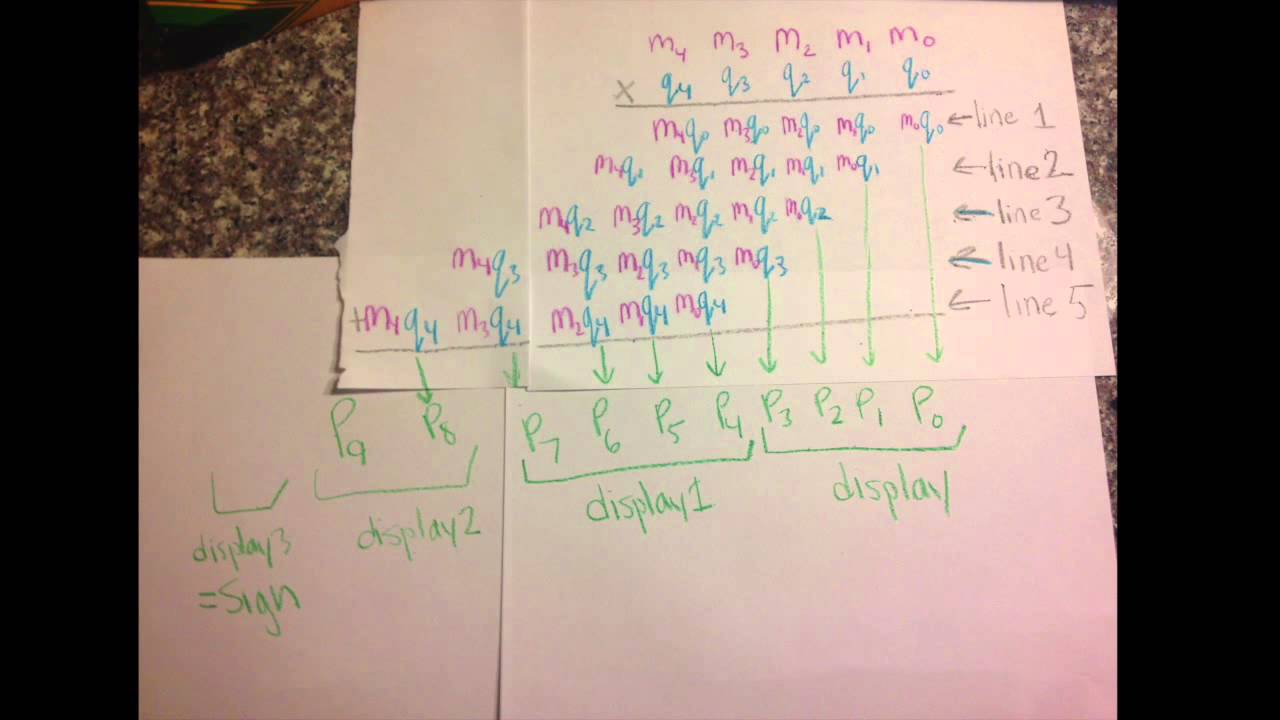 m₄ m₃ m₂ m₁ m₀
× q₄ q₃ q₂ q₁ q₀
m₄q₀ m₃q₀ m₂q₀ m₁q₀ m₀q₀ ← line 1
m₄q₁ m₃q₁ m₂q₁ m₁q₁ m₀q₁ ← line 2
m₄q₂ m₃q₂ m₂q₂ m₁q₂ m₀q₂ ← line 3
m₄q₃ m₃q₃ m₂q₃ m₁q₃ m₀q₃ ← line 4
+ m₄q₄ m₃q₄ m₂q₄ m₁q₄ m₀q₄ ← line 5
P₉ P₈ P₇ P₆ P₅ P₄ P₃ P₂ P₁ P₀
display3 display2 display1 display
= Sign